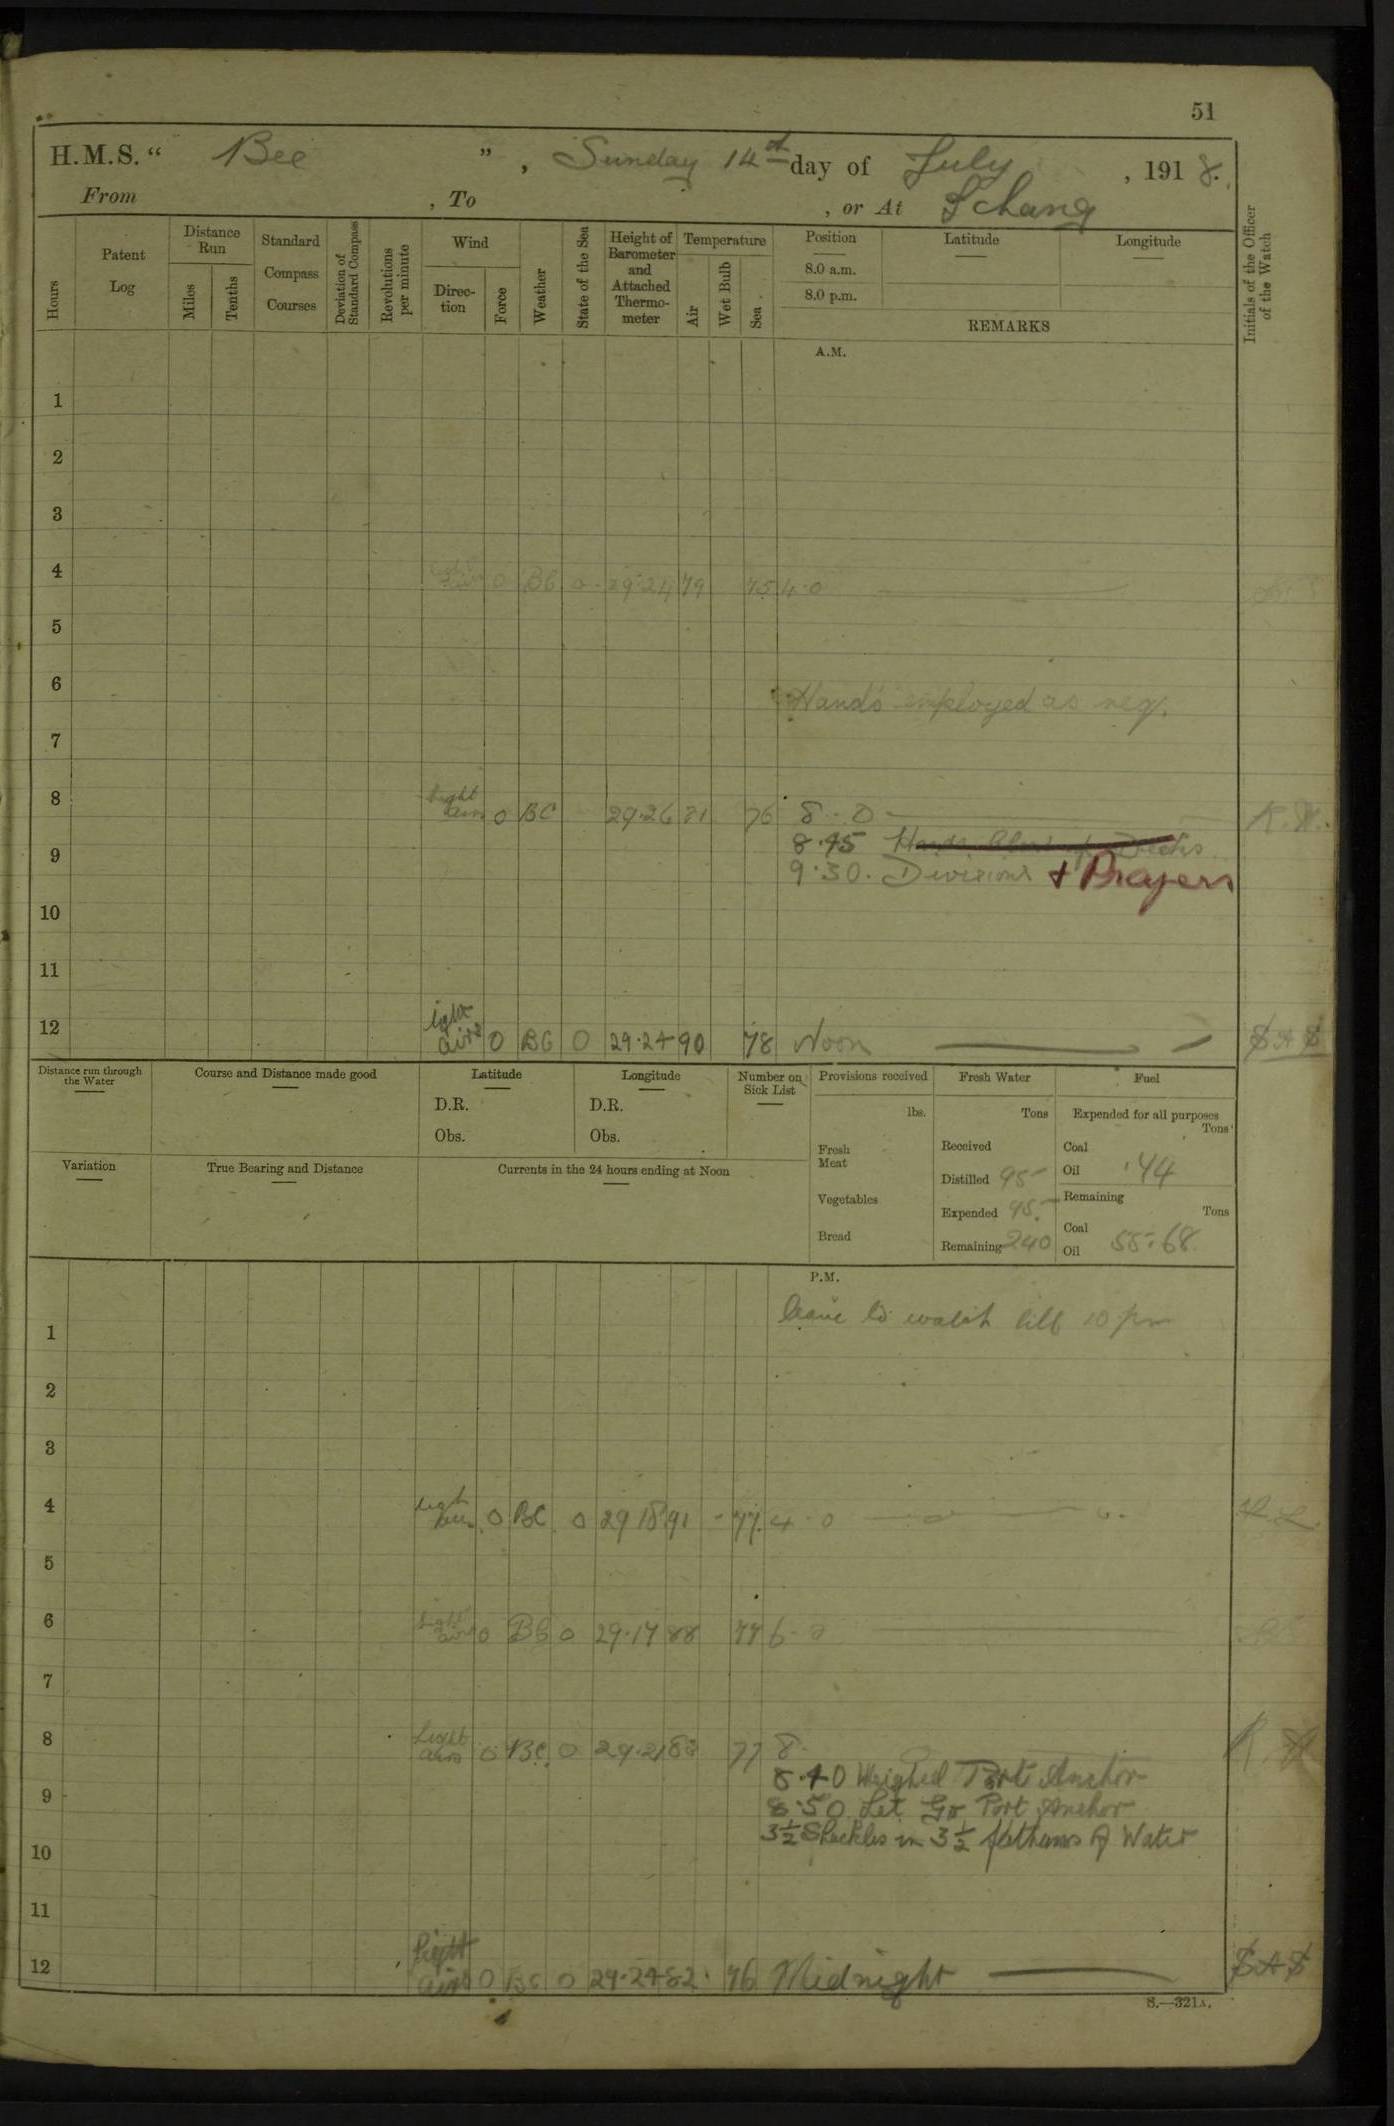 51
H.M.S. “ Bee ” , Sunday 14th day of July , 1918.
From , To , or At Ichang
Hours
Patent Log
Distance Run
Miles
Tenths
Standard Compass Courses
Deviation of Standard Compass
Revolutions per minute
Wind
Direction
Force
Weather
State of the Sea
Height of Barometer and Attached Thermometer
Temperature
Air
Wet Bulb
Sea
Position
8.0 a.m.
8.0 p.m.
Latitude
Longitude
REMARKS
Initials of the Officer of the Watch
A.M.
1
2
3
4 Light airs 0 BC 0 29.24 79 75 4.0
5
6
Hands employed as neq.
7
8 Light airs 0 BC 29.26 81 76 8.0 R.W.
8.45 Hands Decks
9
9.30. Divisions + Prayers
10
11
12 Light airs 0 BC 0 29.24 90 78 Noon SAS
Distance run through the Water
Course and Distance made good
Latitude
D.R.
Obs.
Longitude
D.R.
Obs.
Number on Sick List
Provisions received
lbs.
Fresh Meat
Vegetables
Bread
Fresh Water
Tons
Received
Distilled 95
Expended 95
Remaining 240
Fuel
Expended for all purposes
Tons
Coal
Oil .44
Remaining
Tons
Coal
Oil 55.68
Variation
True Bearing and Distance
Currents in the 24 hours ending at Noon
P.M.
leave to watch till 10 pm
1
2
3
4 Light airs 0 BC 0 29.18 91 77 4.0
5
6 Light airs 0 BC 0 29.17 88 77 6.0
7
8 Light airs 0 BC 0 29.21 83 77 8.
8.40 Weighed Port Anchor
9
8.50 Let Go Port Anchor
3½ Shackles in 3½ fathoms of Water
10
11
12 Light airs 0 BC 0 29.24 82 76 Midnight SAS
S.—321A.